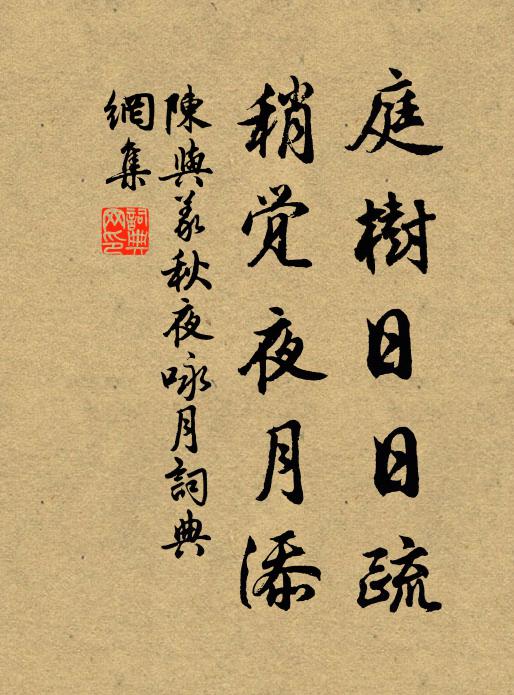 庭樹日日疏
稍觉夜月添
陳與義秋夜咏月詞典
網集
詞典
网印